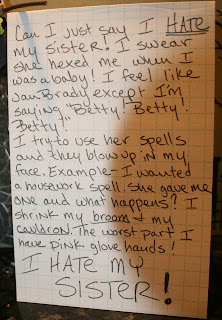 Can I just say I HATE
my SISTER! I swear
she hexed me when I
was a baby! I feel like
Jan Brady except I'm
saying "Betty! Betty!
Betty!"
I try to use her spells
and they blow up in my
face. Example - I wanted
a housework spell. She gave me
one and what happens? I
shrink my broom & my
cauldron. The worst part I
have pink glove hands!
I HATE MY
SISTER!